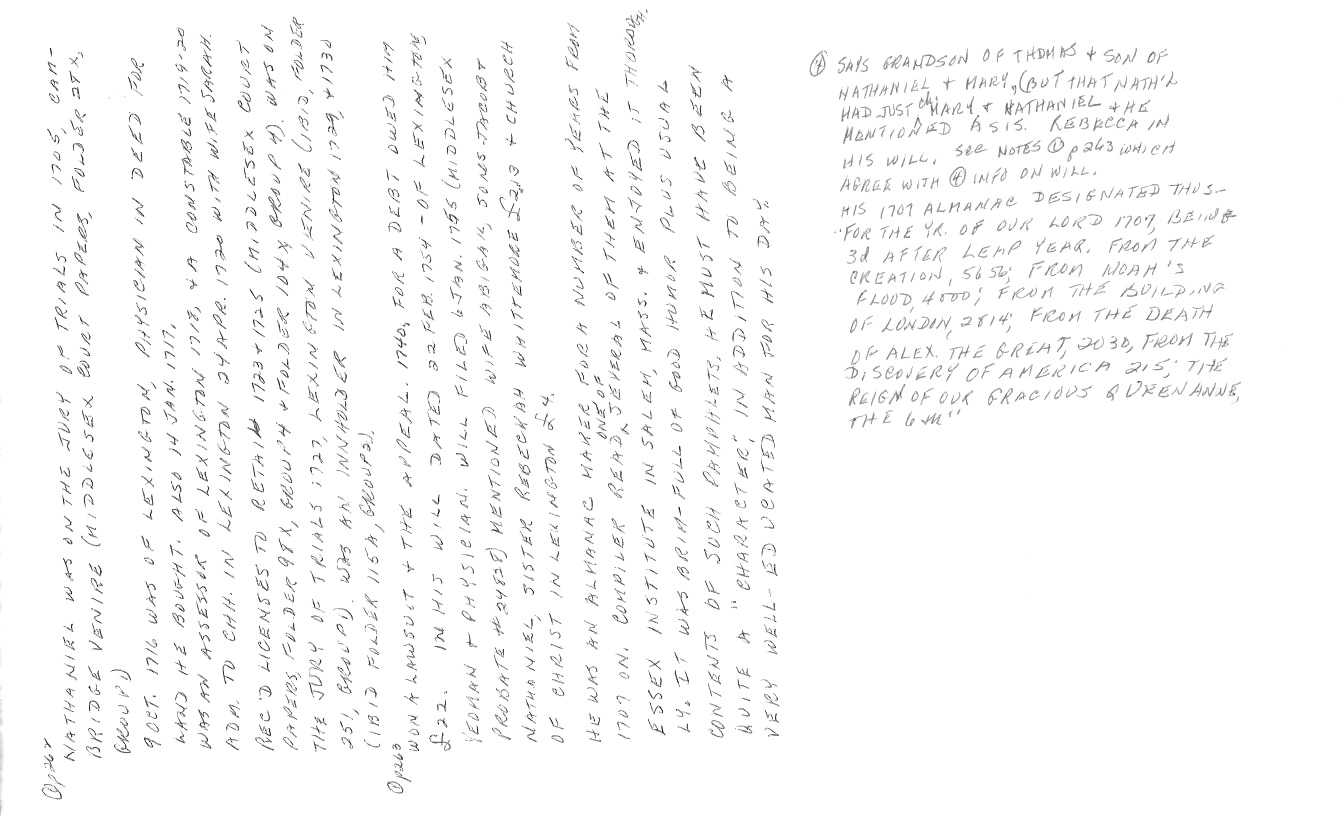 ① p262
NATHANIEL WAS ON THE JURY OF TRIALS IN 1705, CAM-
BRIDGE VENIRE (MIDDLESEX COURT PAPERS, FOLDER 28X,
GROUP 1)
9 OCT. 1716 WAS OF LEXINGTON, PHYSICIAN IN DEED FOR
LAND HE BOUGHT. ALSO 14 JAN. 1717.
WAS AN ASSESSOR OF LEXINGTON 1718, & A CONSTABLE 1719-20
ADM. TO CHH. IN LEXINGTON 24 APR. 1720 WITH WIFE SARAH.
REC'D LICENSES TO RETAIL 1723 & 1725 (MIDDLESEX COURT
PAPERS, FOLDER 98X, GROUP 4 & FOLDER 104X, GROUP 4). WAS ON
THE JURY OF TRIALS 1727, LEXINGTON VENIRE (IBID, FOLDER
251, GROUP 1). WAS AN INNHOLDER IN LEXINGTON 1729, & 1730
(IBID FOLDER 115A, GROUP 2).
① p263
WON A LAWSUIT & THE APPEAL. 1740, FOR A DEBT OWED HIM
£22. IN HIS WILL DATED 22 FEB. 1754 - OF LEXINGTON
YEOMAN & PHYSICIAN. WILL FILED 6 JAN. 1755 (MIDDLESEX
PROBATE # 24828) MENTIONED WIFE ABIGAIL, SONS JACOB &
NATHANIEL, SISTER REBECKAH WHITTEMORE £213 & CHURCH
OF CHRIST IN LEXINGTON £4.
HE WAS AN ALMANAC MAKER FOR A NUMBER OF YEARS FROM
1707 ON. COMPILER READ ONE OF SEVERAL OF THEM AT THE
ESSEX INSTITUTE IN SALEM, MASS. & ENJOYED IT THOROUGH
LY. IT WAS BRIM-FULL OF GOOD HUMOR PLUS USUAL
CONTENTS OF SUCH PAMPHLETS. HE MUST HAVE BEEN
QUITE A "CHARACTER", IN ADDITION TO BEING A
VERY WELL-EDUCATED MAN FOR HIS DAY."
④ SAYS GRANDSON OF THOMAS & SON OF
NATHANIEL & MARY, (BUT THAT NATH'L
HAD JUST ch MARY & NATHANIEL & HE
MENTIONED A SIS. REBECCA IN
HIS WILL. SEE NOTES ① p263 WHICH
AGREE WITH ④ INFO ON WILL.
HIS 1707 ALMANAC DESIGNATED THUS-
"FOR THE YR. OF OUR LORD 1707, BEING
3d AFTER LEAP YEAR. FROM THE
CREATION, 5656; FROM NOAH'S
FLOOD, 4000; FROM THE BUILDING
OF LONDON, 2814; FROM THE DEATH
OF ALEX. THE GREAT, 2030, FROM THE
DISCOVERY OF AMERICA 215; THE
REIGN OF OUR GRACIOUS QUEEN ANNE,
THE 6th"